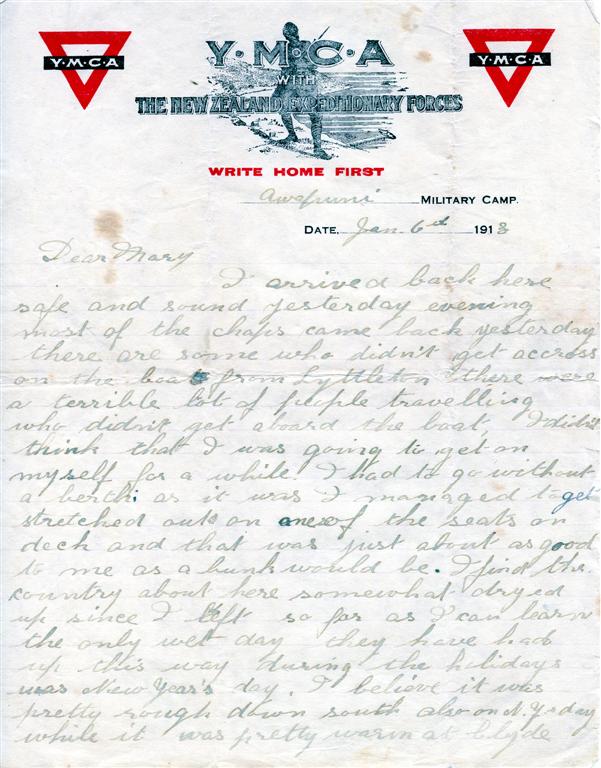 Y·M·C·A
Y·M·C·A
Y·M·C·A
WITH
THE NEW ZEALAND EXPEDITIONARY FORCES
WRITE HOME FIRST
Awapuni MILITARY CAMP.
DATE, Jan 6th 1918
Dear Mary
I arrived back here
safe and sound yesterday evening
most of the chaps came back yesterday
there are some who didn't get accross
on the boat from Lyttleton there were
a terrible lot of people travelling
who didn't get aboard the boat. I didn't
think that I was going to get on
myself for a while. I had to go without
a berth. as it was I managed to get
stretched out on one of the seats on
deck and that was just about as good
to me as a bunk would be. I find the
country about here somewhat dryed
up since I left so far as I can learn
the only wet day they have had
up this way during the holidays
was New Year's day. I believe it was
pretty rough down south also on N.Ys day
while it was pretty warm at Clyde